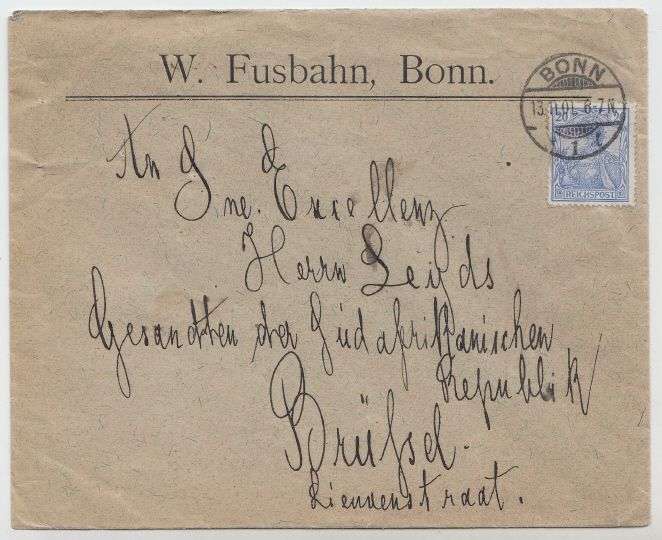 W. Fusbahn, Bonn.
BONN
13.11.01. 6-7 N.
1 t
20
REICHSPOST
An Sne. Excellenz
Herrn Leyds
Gesandten der Südafrikanischen
Republik
Brüssel.